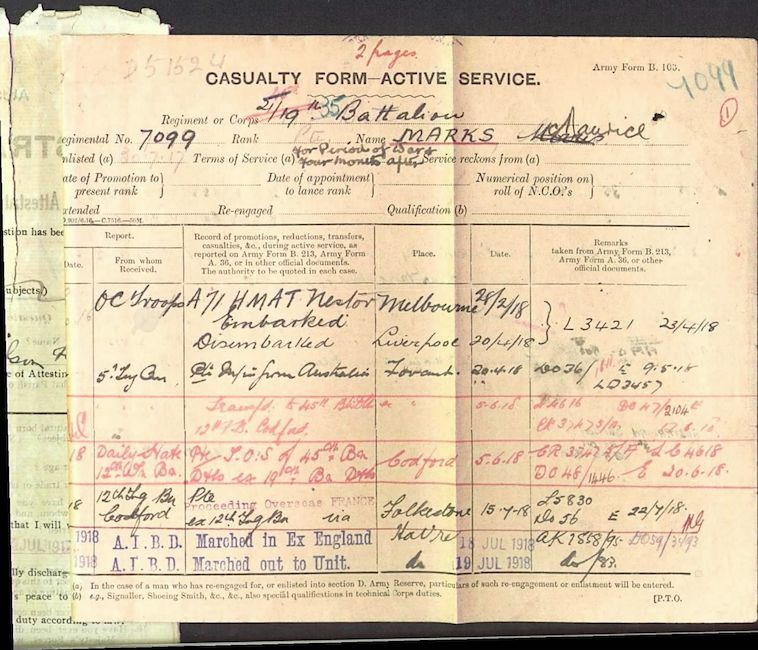 2 pages
D 51524
CASUALTY FORM—ACTIVE SERVICE.
Army Form B. 103.
7099
1
Regiment or Corps 21/19th 35 Battalion
egimental No. 7099 Rank Pte Name MARKS Maurice
nlisted (a) 30.7.17 Terms of Service (a) For Period of War & Four Months after Service reckons from (a)
ate of Promotion to present rank
Date of appointment to lance rank
Numerical position on roll of N.C.O.'s
xtended Re-engaged Qualification (b)
Report.
Date.
From whom Received.
Record of promotions, reductions, transfers, casualties, &c., during active service, as reported on Army Form B. 213, Army Form A. 36, or in other official documents. The authority to be quoted in each case.
Place.
Date.
Remarks taken from Army Form B. 213, Army Form A. 36, or other official documents.
OC Troops A71 HMAT Nestor Melbourne 28/2/18
Embarked
Disembarked Liverpool 20/4/18 L3421 23/4/18
5th Tng Bn from Australia Fovant 20.4.18 DO36/ E 9.5.18
LD3457
Transfd. to 45th 5.6.18 L4616 DO47/2104 E
12th T.B. Codford
18 Daily State Pte T.O.S of 45th Bn Codford 5.6.18 L E 4618
12th Bn. ex 19th Bn DO48/1446 E 20.6.18
18 12th Tng Bn Pte L5830
Codford Proceeding Overseas FRANCE
ex 12th Tng Bn via Folkestone 15-7-18 Do 56 E 22/7/18.
1918 A.I.B.D. Marched in Ex England Havre 18 JUL 1918 AK1858/95 DO59/34/93
1918 A.I.B.D. Marched out to Unit. do 19 JUL 1918 do/83.
(a) In the case of a man who has re-engaged for, or enlisted into section D. Army Reserve, particulars of such re-engagement or enlistment will be entered.
(b) e.g., Signaller, Shoeing Smith, &c., &c., also special qualifications in technical Corps duties.
[P.T.O.
stion has bee
ubjects!)
e of Attestin
that I will
lly discharge
s peace to
duty according to law.